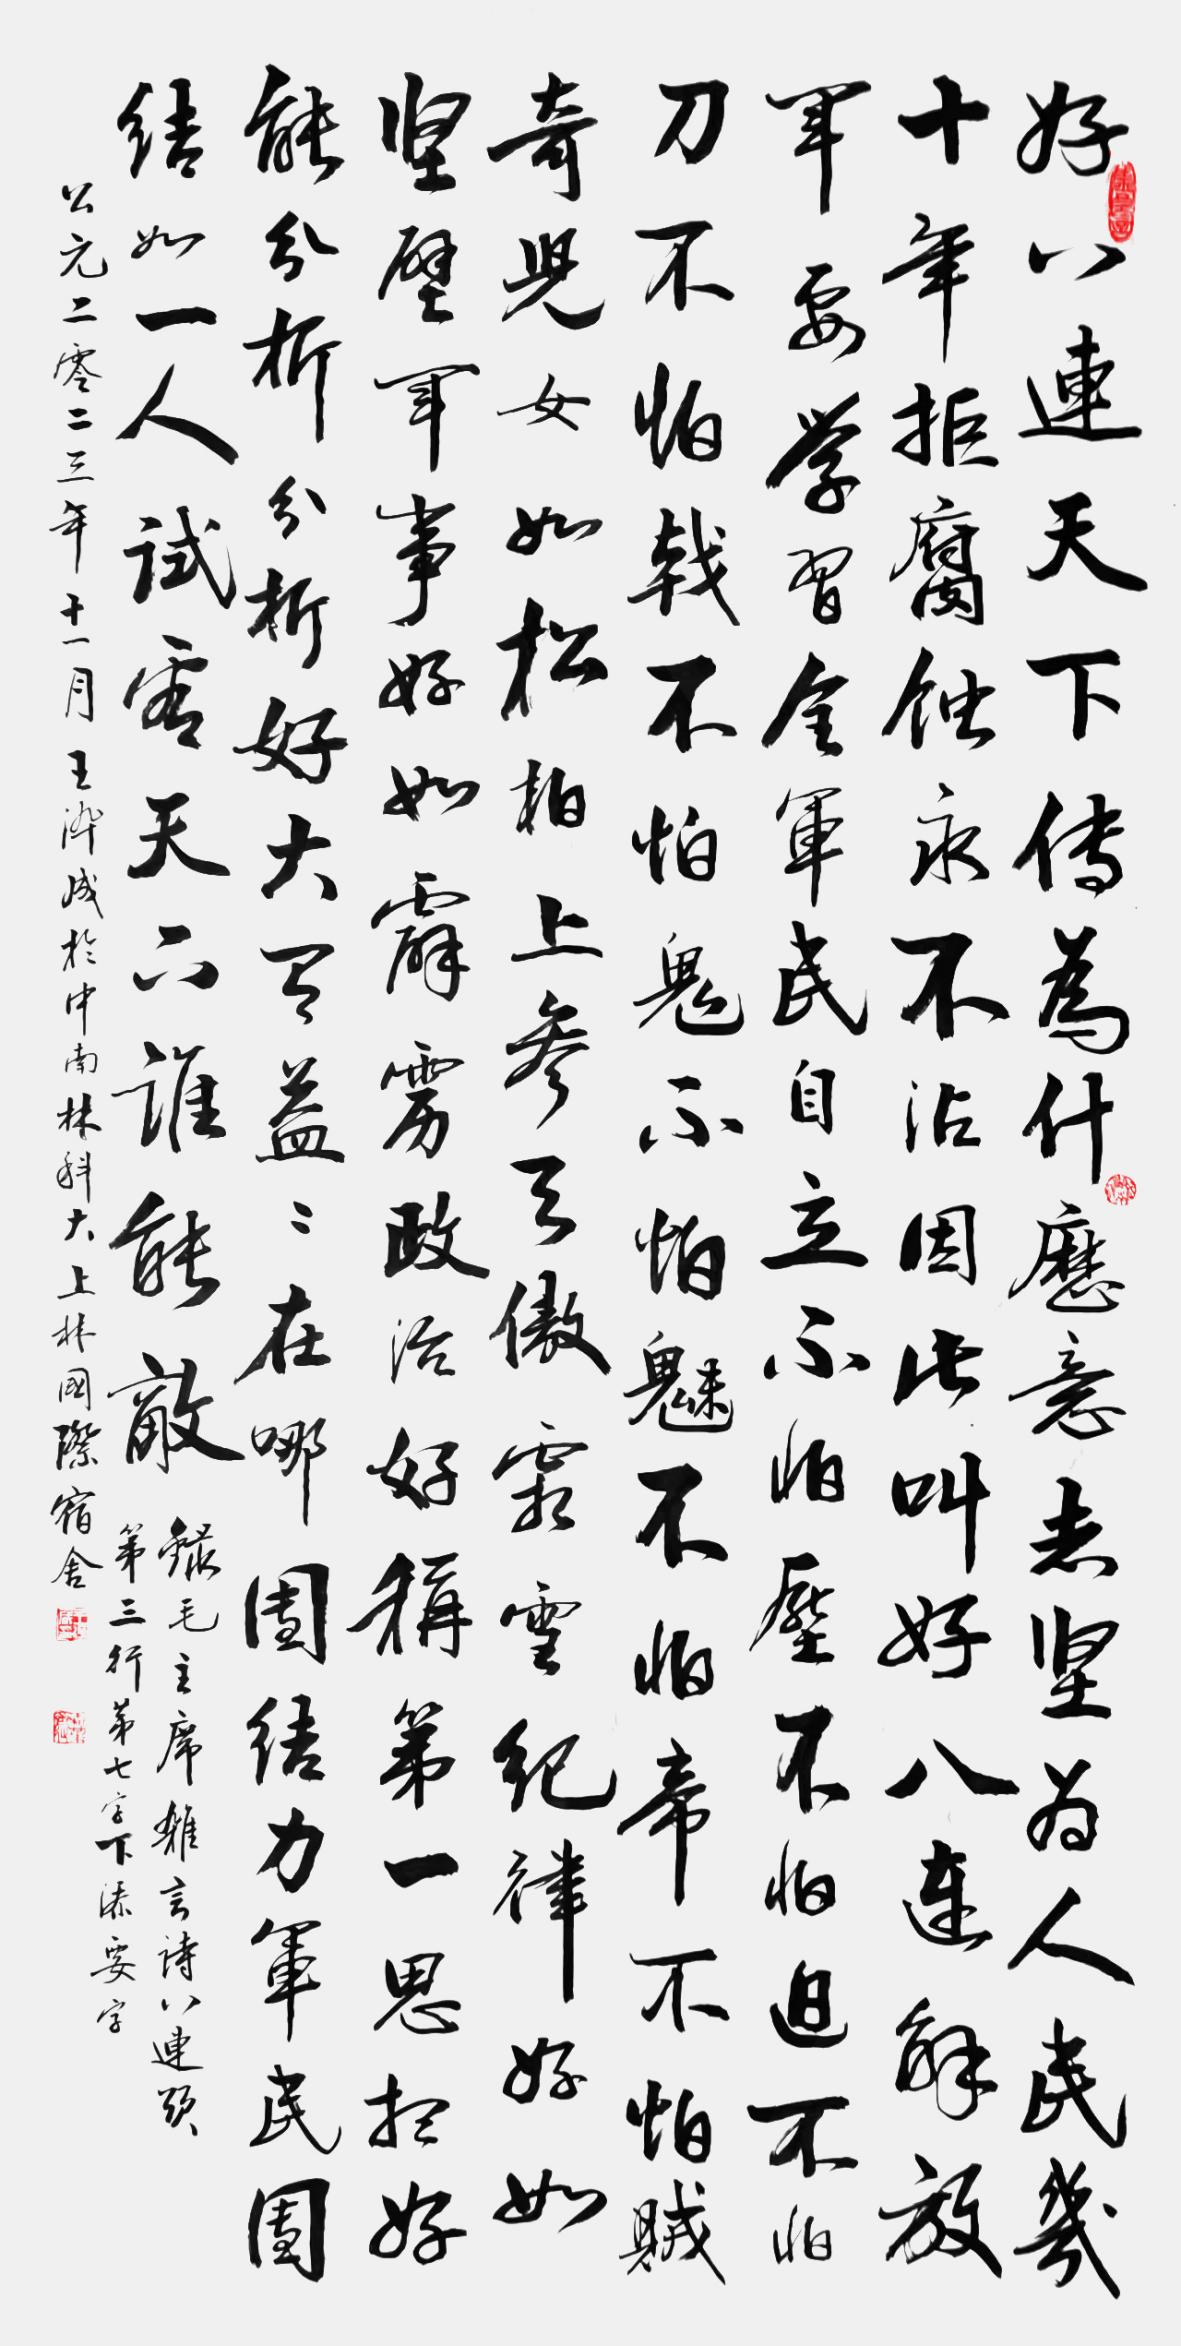 好八連天下传為什麽意志坚为人民幾
十年拒腐蚀永不沾因此叫好八连解放
军要学習全軍民自立不怕壓不怕迫不怕
刀不怕戟不怕鬼不怕魅不怕帝不怕賊
奇兒女如松柏上参天傲霜雪纪律好如
坚壁军事好如霹雳政治好稱第一思想好
能分析分析好大有益〻在哪團结力軍民團
结如一人試看天下誰能敵
錄毛主席雜言詩八連頌
第三行第七字下添要字
公元二零二三年十一月王濘成於中南林科大上林國際宿舍